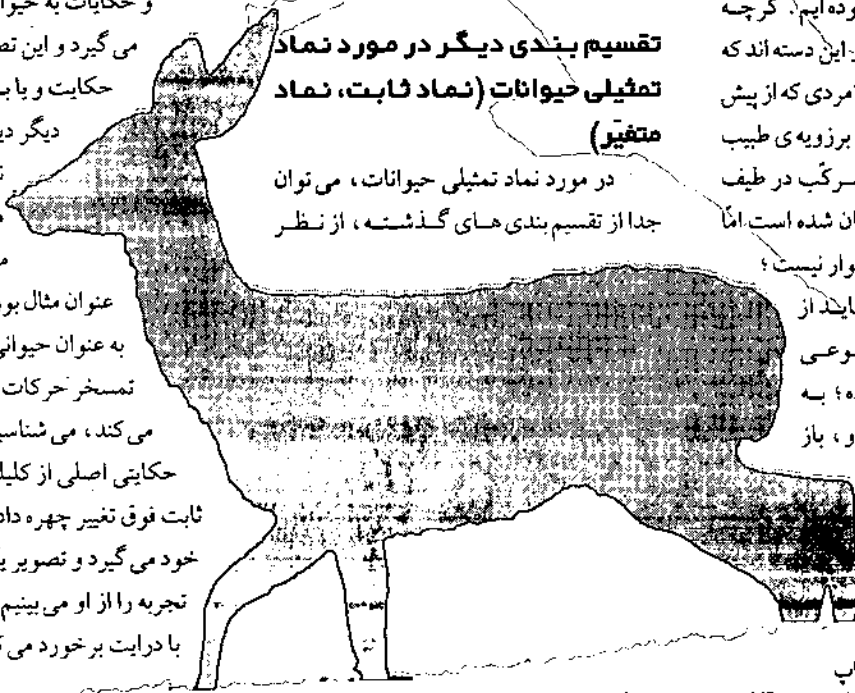 وده ایم. گرچه
این دسته اند که
امردی که از پیش
برزویه ی طبیب
ـرکّب در طیف
ان شده است امّا
وار نیست؛
ایـد از
وعـی
ده؛ بـه
و، باز
اپ
تقسیم بـندی دیـگـر در مورد نماد
تمثیلی حیوانات (نـماد ثـابت، نـماد
متغیّر)
در مورد نماد تمثیلی حیوانات، می توان
جدا از تقسیم بندی هـای گـذشـتـه، از نـظـر
و حکایات به حیوا
می گیرد و این تص
حکایت و یا بـ
دیگر دیـ
عنوان مثال بو
به عنوان حیوانی
تمسخر حرکات
می کند، می شناسیـ
حکایتی اصلی از کلیلـ
ثابت فوق تغییر چهره داد
خود می گیرد و تصویر یـ
تجربه را از او می بینیم
با درایت برخورد می کـ